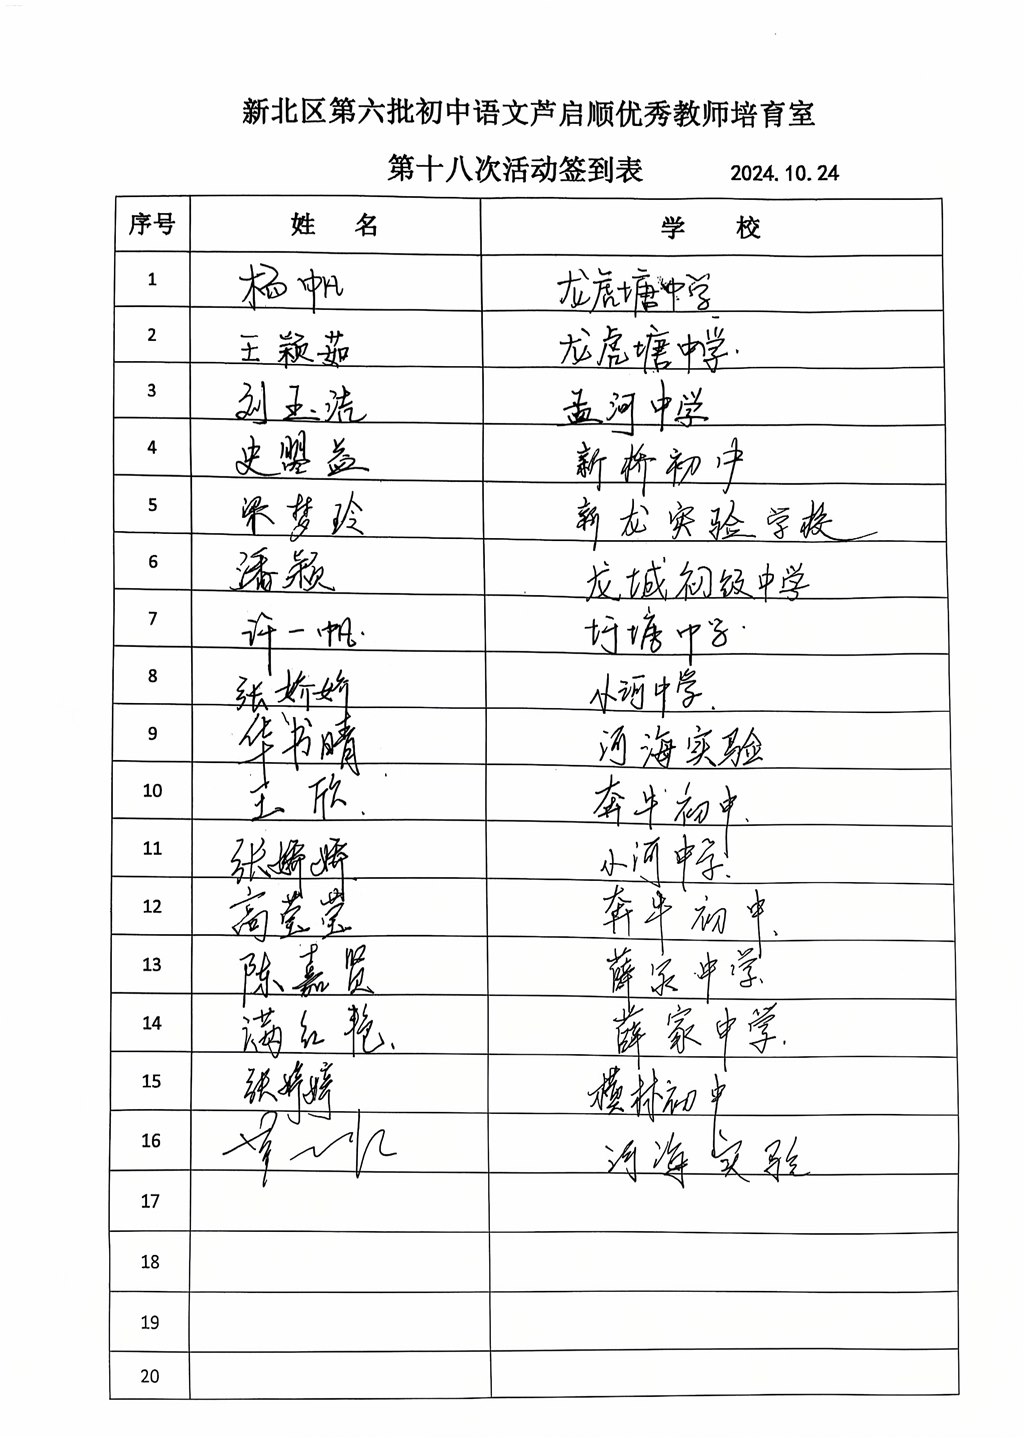 新北区第六批初中语文芦启顺优秀教师培育室
第十八次活动签到表 2024.10.24
序号 姓 名 学 校
1 杨帆 龙虎塘中学
2 王颖茹 龙虎塘中学.
3 刘玉洁 孟河中学
4 史盟益 新桥初中
5 梁梦玲 新龙实验学校
6 潘颖 龙城初级中学
7 许一帆. 圩塘中学.
8 张娇娇 小河中学.
9 华书晴 河海实验
10 王欣. 奔牛初中.
11 张娇娇 小河中学.
12 高莹莹 奔牛初中.
13 陈嘉贤 薛家中学.
14 满红艳. 薛家中学.
15 张婷婷 横林初中
16 河海实验
17
18
19
20